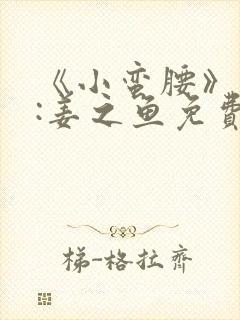 《小蛮腰》
:姜之鱼免費
梯-格拉齐